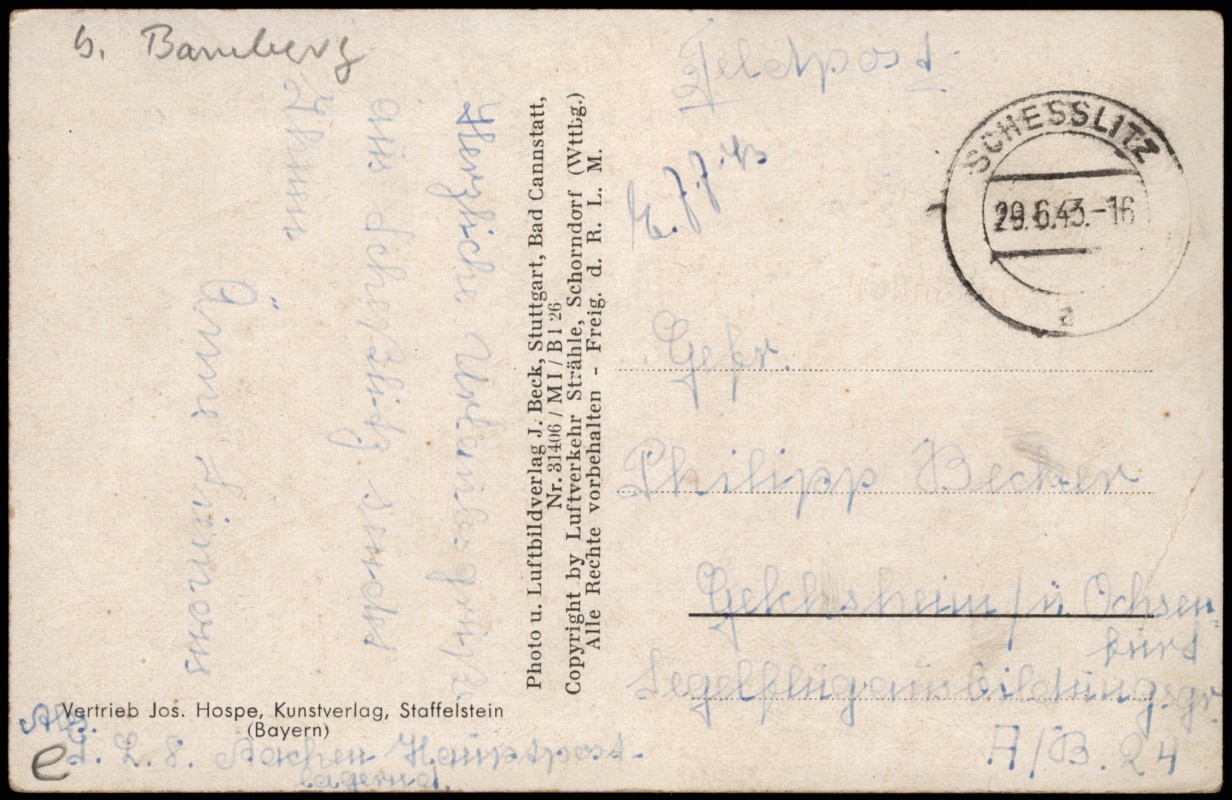 b. Bamberg
Herzliche Urlaubsgrüße
aus Scheßlitz sendet
Ihnen
Anne
Vertrieb Jos. Hospe, Kunstverlag, Staffelstein
(Bayern)
Abs.
L. 8. Aachen Hauptpost-
lagernd.
e
Photo u. Luftbildverlag J. Beck, Stuttgart, Bad Cannstatt,
Nr. 31406 / M I / B 1 26
Copyright by Luftverkehr Strähle, Schorndorf (Wttbg.)
Alle Rechte vorbehalten - Freig. d. R. L. M.
Feldpost
SCHESSLITZ
29.6.43.-16
a
Gefr.
Philipp Becker
Gelchsheim / ü Ochsen-
furt
Segelflugausbildungsgr.
A/B. 24